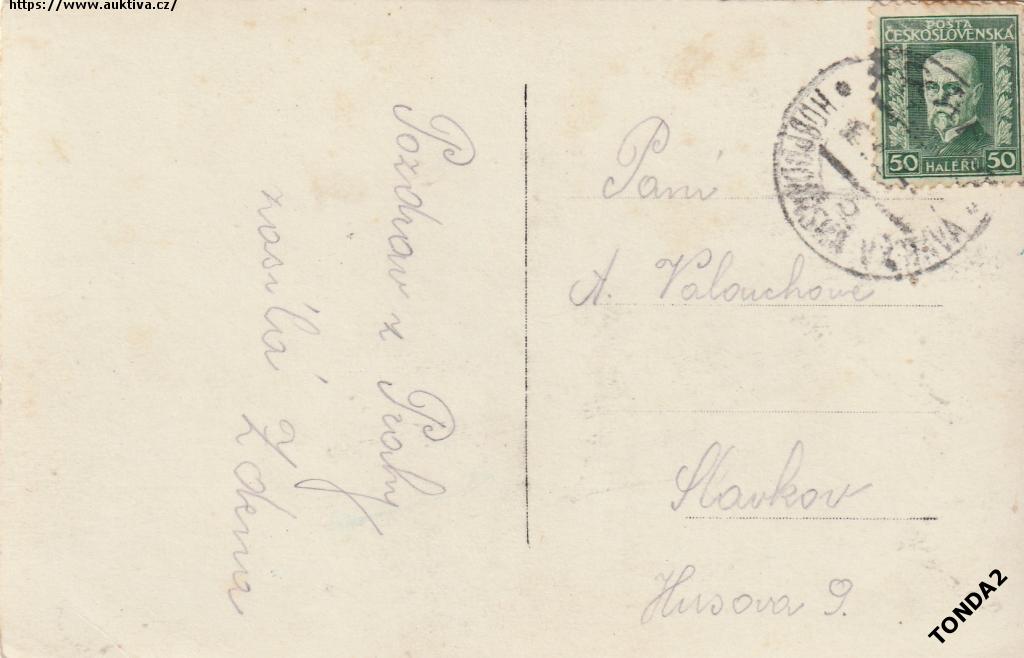 https://www.auktiva.cz/
POŠTA
ČESKOSLOVENSKÁ
50 HALÉŘŮ 50
Pozdrav z Prahy
zasílá
Zdena
Paní
A. Valouchové
Slavkov
Husova 9.
TONDA2